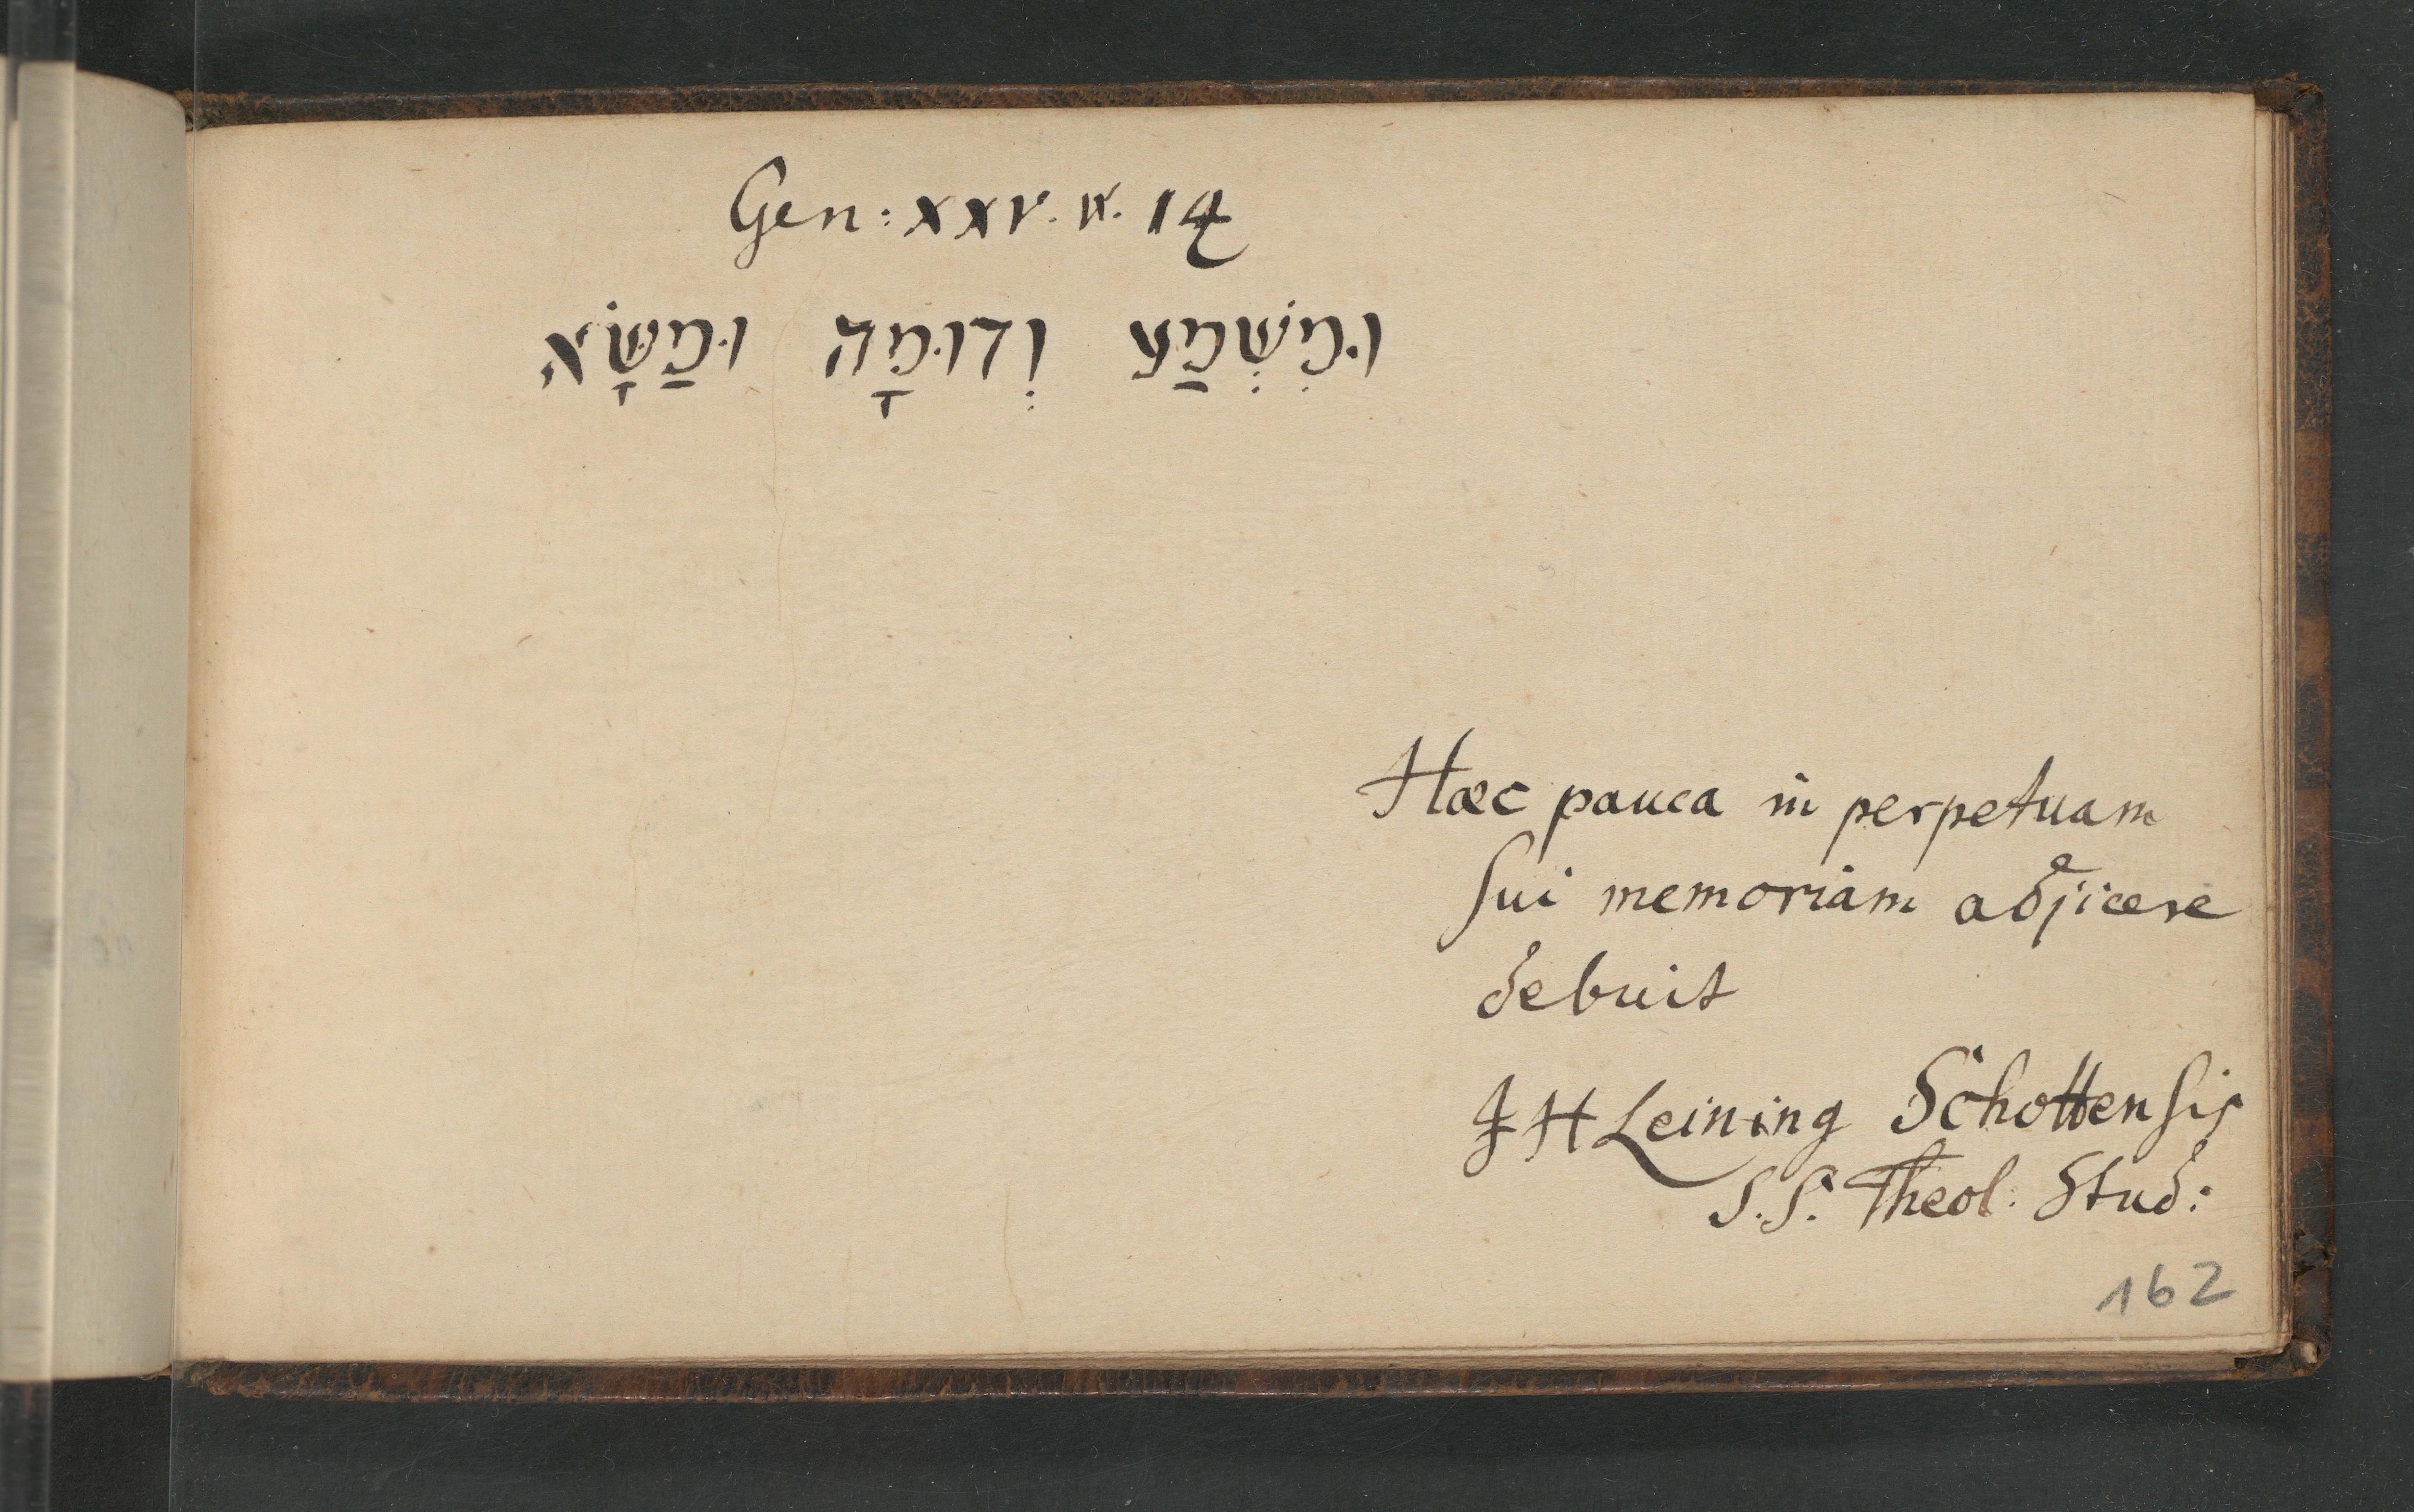 Gen: XXV. v. 14
וּמִשְׁמַע וְדוּמָה וּמַשָּׂא
Haec pauca in perpetuam
sui memoriam adjicere
debuit
JH Leining Schottensis
S. S. Theol. Stud:
162